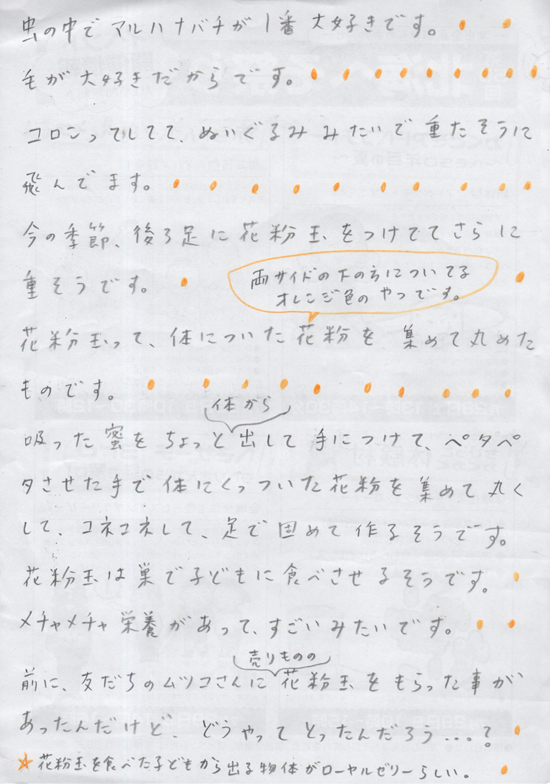 虫の中でマルハナバチが1番大好きです。
毛が大好きだからです。
コロンってしてて、ぬいぐるみみたいで重たそうに
飛んでます。
今の季節、後ろ足に花粉玉をつけててさらに
重そうです。
両サイドの下の方についてる
オレンジ色のやつです。
花粉玉って、体についた花粉を集めて丸めた
ものです。
体から
吸った蜜をちょっと出して手につけて、ペタペ
タさせた手で体にくっついた花粉を集めて丸く
して、コネコネして、足で固めて作るそうです。
花粉玉は巣で子どもに食べさせるそうです。
メチャメチャ栄養があって、すごいみたいです。
売りものの
前に、友だちのムツコさんに花粉玉をもらった事が
あったんだけど、どうやってとったんだろう…?
☆花粉玉を食べた子どもから出る物体がローヤルゼリーらしい。